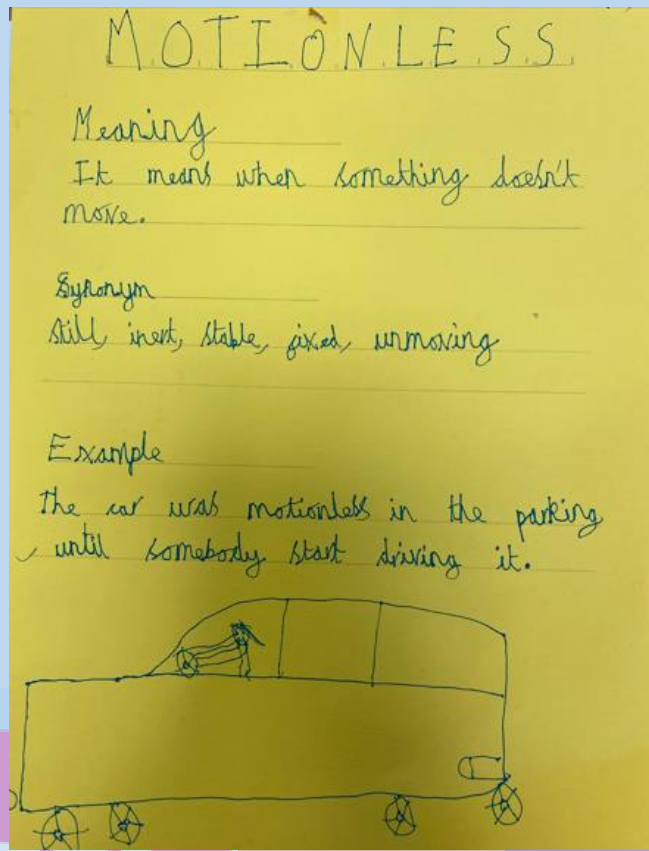 MOTIONLESS
Meaning
It means when something doesn't
move.
Synonym
still, inert, stable, fixed, unmoving
Example
The car was motionless in the parking
, until somebody start driving it.